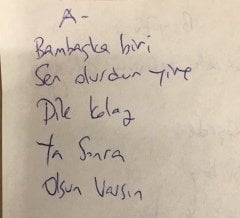 A-
Bambaşka biri
Sen olurdun yine
Dile Kolay
Ya Sonra
Olsun Varsın